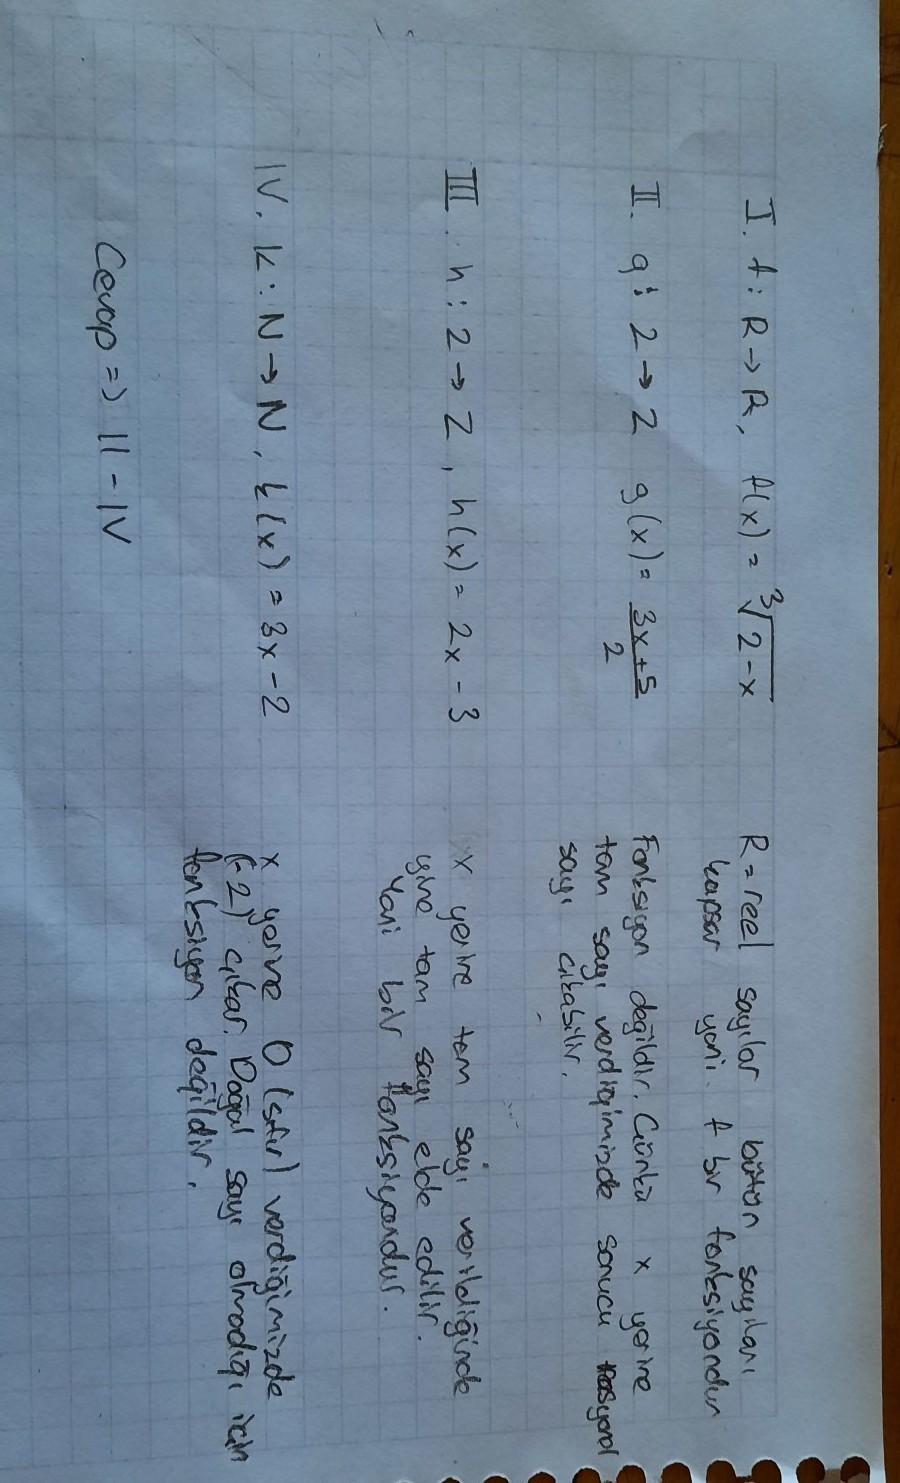 I. f: R→R, f(x) = ∛(2-x)
R = reel sayılar bütün sayıları
kapsar yani. f bir fonksiyondur
II. g: Z→Z g(x) = (3x+5)/2
Fonksiyon değildir. Çünkü x yerine
tam sayı verdiğimizde sonucu rasyonel
sayı çıkabilir.
III. h: Z→Z, h(x) = 2x-3
x yerine tam sayı verildiğinde
yine tam sayı elde edilir.
Yani bir fonksiyondur.
IV. k: N→N, k(x) = 3x-2
x yerine 0 (sıfır) verdiğimizde
(-2) çıkar. Doğal sayı olmadığı için
fonksiyon değildir.
Cevap => II-IV